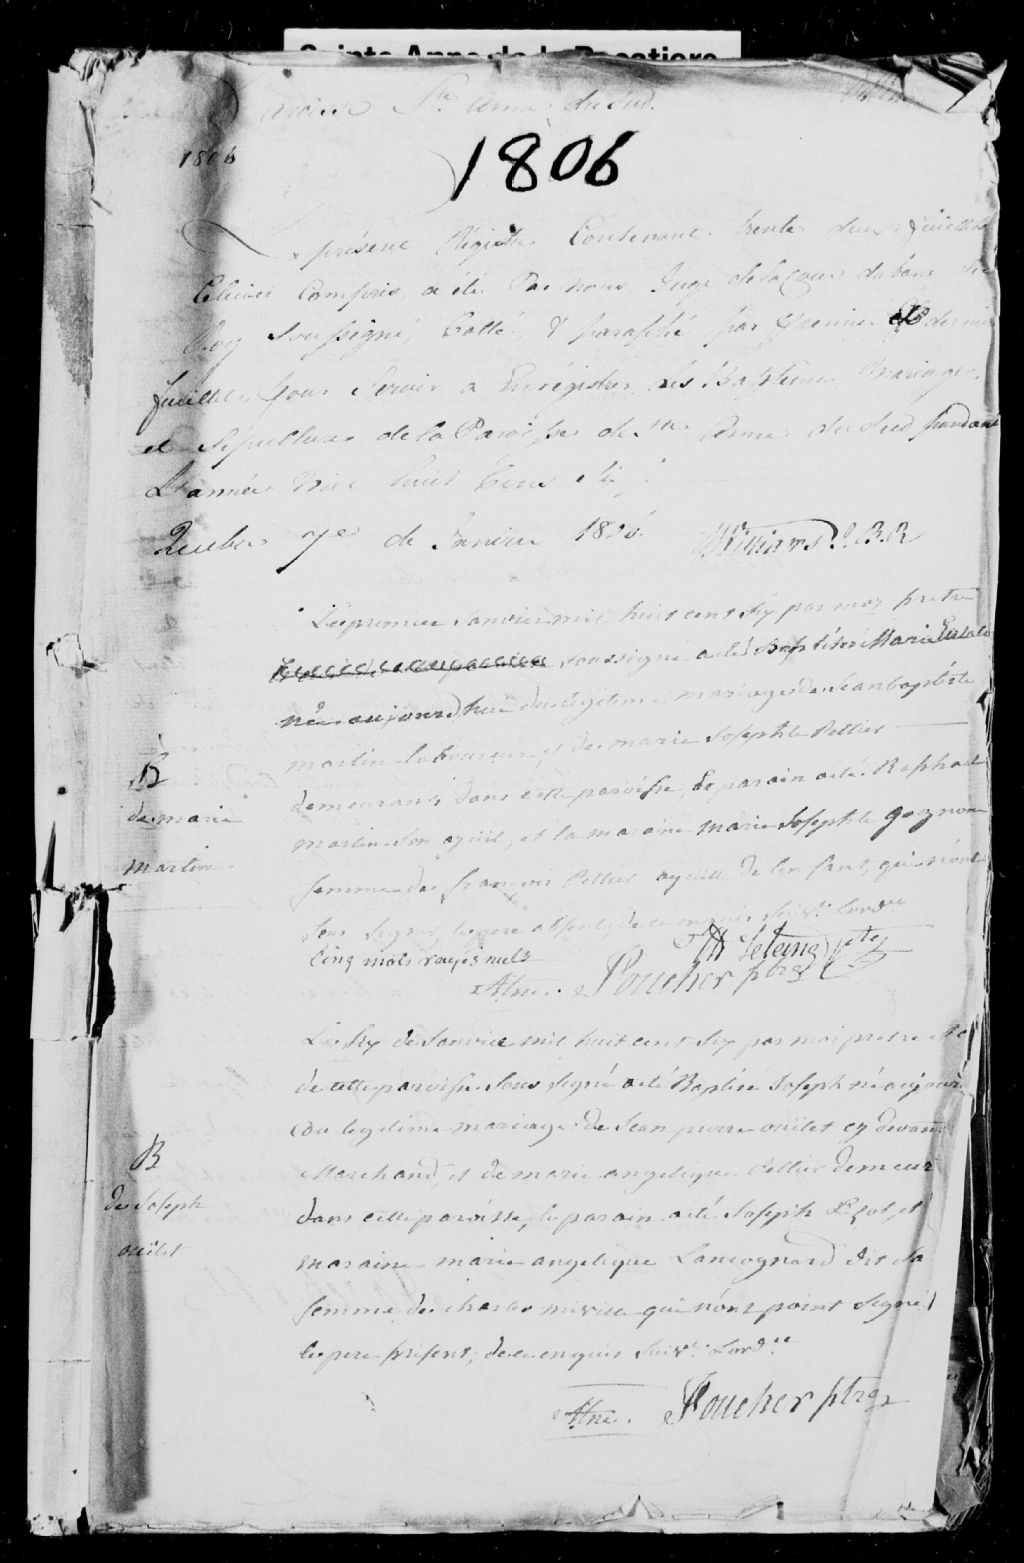 Sainte Anne de la Pocatiere
Paroisse Ste Anne du Sud.
1806
1806
Le présent Régistre Contenant trente deux feuillets
Celuici Compris a été Par nous Juge de la Cour du banc du
Roy Soussigné Cotté & paraphé par premier et dernier
feuillet, pour Servir a Enrégistrer les Baptemes Mariages
et Sépultures de la Paroisse de Ste Anne du Sud pendant
L'année Mil huit Cens Six
Quebec 7e de Janvier 1806. Williams J.B.R
Le premier Janvier mil huit cent six par moy pretre
soussigné a été Baptisée Marie
née aujourd'huÿ du legitime mariage de Jean baptiste
martin laboureur, et de marie Josephte Pellier
demeurants dans cette paroisse, Le parain a été Raphael
martin Son ayeüil, et la maraine marie Josephte gagnon
femme de françois Pellier ayeüille de l'enfant, qui n'ont
Sceu Signer, le pere absent, de ce enquis Suivt. Lordce
Cinq mots rayés nuls
ptre
Foucher ptre
B
de marie
martin
Le Six de Janvier mil huit cent six par moi pretre
de cette paroisse Sous Signé a été Baptisé Joseph né aujour
du legitime mariage de Jean pierre oüilet cy devant
Marchand, et de marie angelique Pellier demeur
dans cette paroisse, le parain a été Joseph et
maraine marie angelique Lancognard dit
femme de charles miville qui n'ont point Signé
le pere présent, de ce enquis Suivt. Lordce
Foucher ptre
B
de Joseph
oüilet